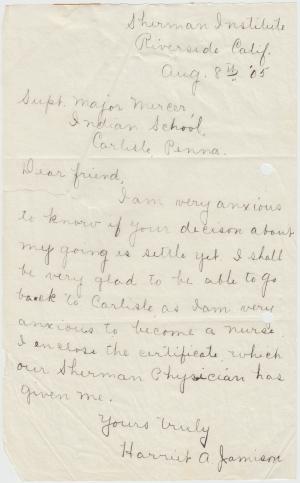 Sherman Institute
Riverside Calif.
Aug. 8th '05
Supt. Major Mercer,
Indian School,
Carlisle Penna.
Dear friend,
I am very anxious
to know if your decison about
my going is settle yet. I shall
be very glad to be able to go
back to Carlisle, as I am very
anxious to become a nurse.
I enclose the certificate, which
our Sherman Physician has
given me.
Yours truly
Harriet A. Jamison